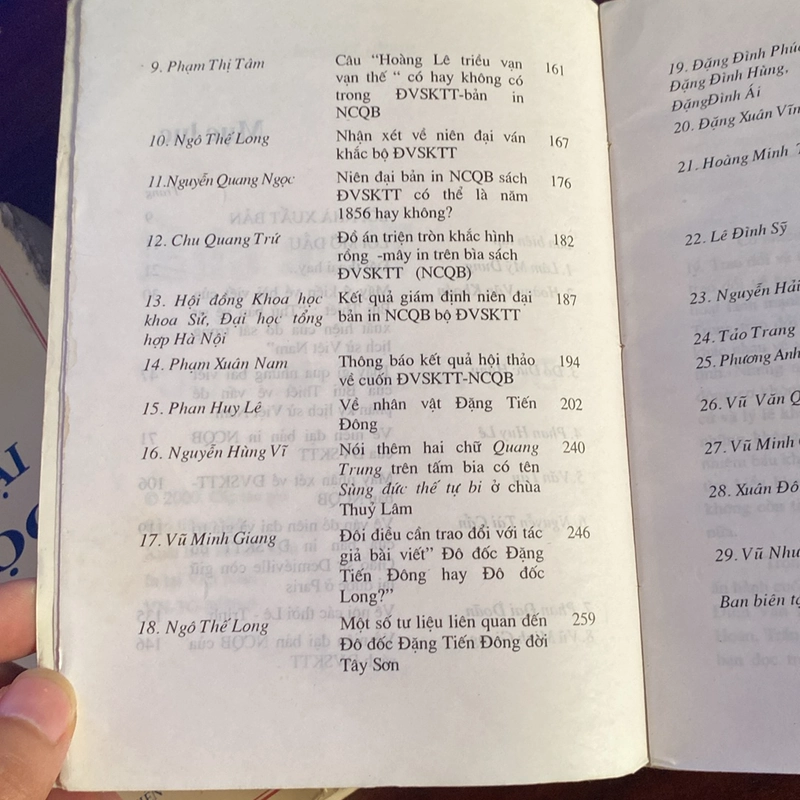 9. Phạm Thị Tâm
Câu "Hoàng Lê triều vạn
vạn thế " có hay không có
trong ĐVSKTT-bản in
NCQB
161
10. Ngô Thế Long
Nhận xét về niên đại ván
khắc bộ ĐVSKTT
167
11.Nguyễn Quang Ngọc
Niên đại bản in NCQB sách
ĐVSKTT có thể là năm
1856 hay không?
176
12. Chu Quang Trứ
Đồ án triện tròn khắc hình
rồng -mây in trên bìa sách
ĐVSKTT (NCQB)
182
13. Hội đồng Khoa học
khoa Sử, Đại học tổng
hợp Hà Nội
Kết quả giám định niên đại
bản in NCQB bộ ĐVSKTT
187
14. Phạm Xuân Nam
Thông báo kết quả hội thảo
về cuốn ĐVSKTT-NCQB
194
15. Phan Huy Lê
Về nhân vật Đặng Tiến
Đông
202
16. Nguyễn Hùng Vĩ
Nói thêm hai chữ Quang
Trung trên tấm bia có tên
Sùng đức thế tự bi ở chùa
Thuỷ Lâm
240
17. Vũ Minh Giang
Đôi điều cần trao đổi với tác
giả bài viết" Đô đốc Đặng
Tiến Đông hay Đô đốc
Long?"
246
18. Ngô Thế Long
Một số tư liệu liên quan đến
Đô đốc Đặng Tiến Đông đời
Tây Sơn
259
19. Đặng Đình Phúc
Đặng Đình Hùng,
ĐặngĐình Ái
20. Đặng Xuân Vĩn
21. Hoàng Minh
22. Lê Đình Sỹ
23. Nguyễn Hải
24. Tảo Trang
25. Phương Anh
26. Vũ Văn Q
27. Vũ Minh
28. Xuân Đô
29. Vũ Như
Ban biên tạ